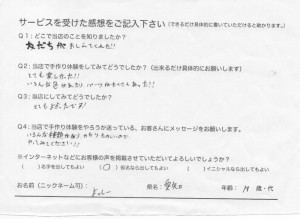 サービスを受けた感想をご記入下さい（できるだけ具体的に書いていただけると助かります。）
Q1：どこで当店のことを知りましたか？
友だちが おしえてくれた!!
Q2：当店で手作り体験をしてみてどうでしたか？（出来るだけ具体的にお願いします）
とても楽しかった!!
いろんな色があり パーツがたくさんあった!!
Q3：当店にしてみてどうでしたか？
とてもよかったです!
Q4：当店で手作り体験をやろうか迷っている、お客さんにメッセージをお願いします。
いろんな種類があり
やってみてください!!
※インターネットなどにお客様の声を掲載させていただいてよろしいでしょうか？
（　）名字を出してもよい　（○）仮名なら出してもよい　（　）イニシャルなら出してもよい
お名前（ニックネーム可）：　県名：愛知　年齢：19 歳・代